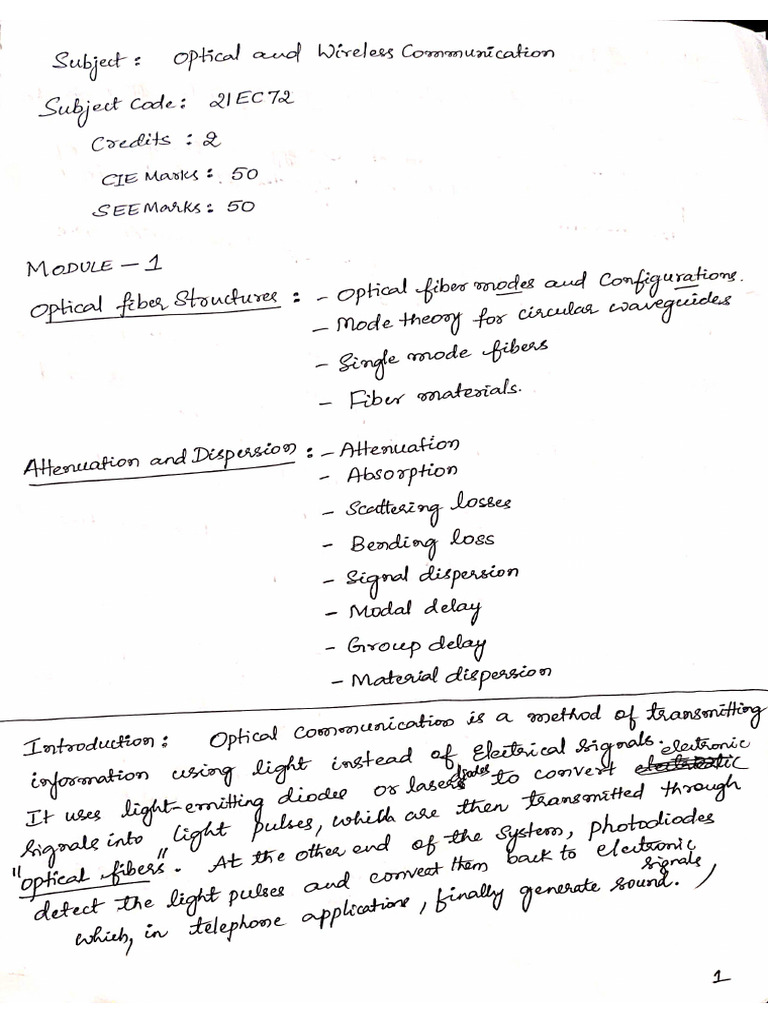 Subject: Optical and Wireless Communication
Subject Code: 21EC72
Credits: 2
CIE Marks: 50
SEE Marks: 50
MODULE - 1
Optical fiber Structures: - Optical fiber modes and Configurations.
- Mode theory for circular waveguides
- Single mode fibers
- Fiber materials.
Attenuation and Dispersion: - Attenuation
- Absorption
- Scattering losses
- Bending loss
- Signal dispersion
- Modal delay
- Group delay
- Material dispersion
Introduction: Optical Communication is a method of transmitting
information using light instead of Electrical signals.
It uses light-emitting diodes or laser diodes to convert electronic
signals into light pulses, which are then transmitted through
"optical fibers". At the other end of the system, photodiodes
detect the light pulses and convert them back to electronic signals
which, in telephone applications, finally generate sound.
1